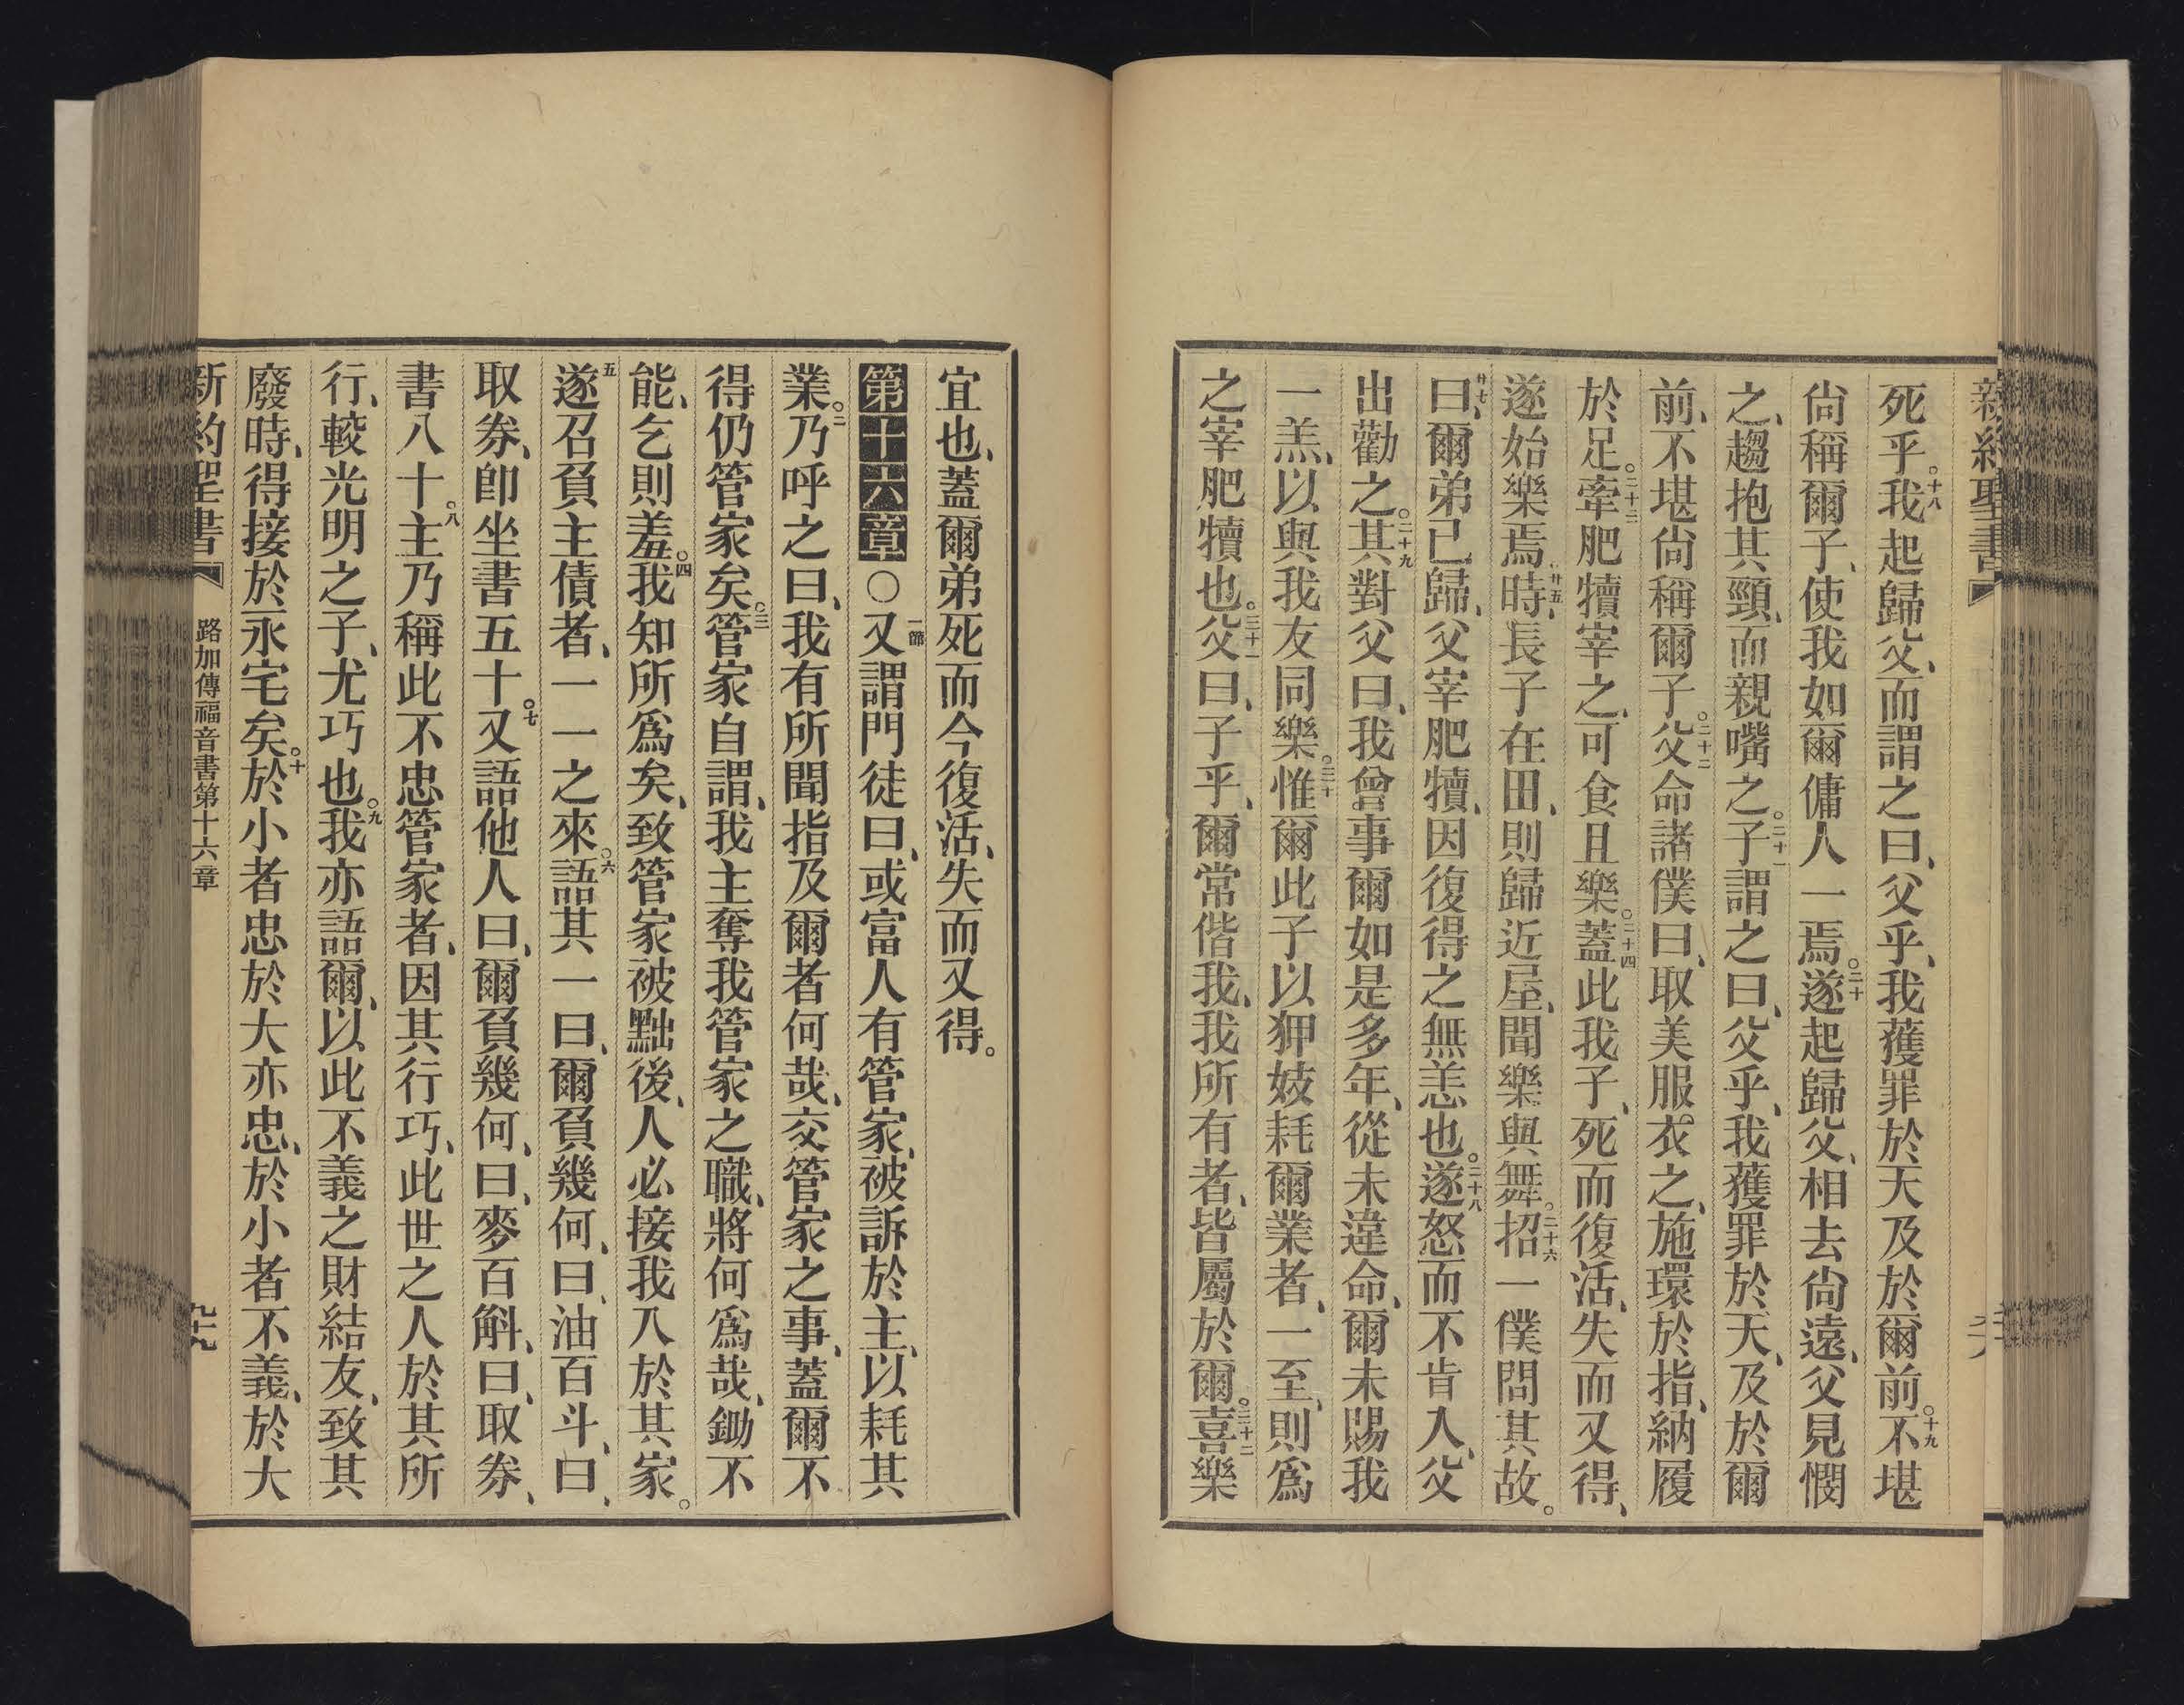 新約聖書
死乎。十八我起歸父、而謂之曰、父乎、我獲罪於天及於爾前。十九不堪
尙稱爾子、使我如爾傭人一焉。二十遂起歸父、相去尙遠、父見憫
之、趨抱其頸、而親嘴之。二十一子謂之曰、父乎、我獲罪於天、及於爾
前、不堪尙稱爾子。二十二父命諸僕曰、取美服衣之、施環於指、納履
於足。二十三牽肥犢宰之、可食且樂。二十四蓋此我子、死而復活、失而又得、
遂始樂焉。廿五時、長子在田、則歸近屋、聞樂與舞。二十六招一僕問其故。
廿七曰、爾弟已歸、父宰肥犢、因復得之無恙也。二十八遂怒而不肯入、父
出勸之。二十九其對父曰、我曾事爾如是多年、從未違命、爾未賜我
一羔、以與我友同樂。三十惟爾此子以狎妓耗爾業者、一至、則爲
之宰肥犢也。三十一父曰、子乎、爾常偕我、我所有者、皆屬於爾。三十二喜樂
宜也、蓋爾弟死而今復活、失而又得。
第十六章○一節又謂門徒曰、或富人有管家、被訴於主、以耗其
業。二乃呼之曰、我有所聞指及爾者何哉、交管家之事、蓋爾不
得仍管家矣。三管家自謂、我主奪我管家之職、將何爲哉、鋤不
能、乞則羞。四我知所爲矣、致管家被黜後、人必接我入於其家。
五遂召負主債者、一一之來。六語其一曰、爾負幾何、曰、油百斗、曰、
取券、卽坐書五十。七又語他人曰、爾負幾何、曰、麥百斛、曰、取券、
書八十。八主乃稱此不忠管家者、因其行巧、此世之人於其所
行、較光明之子、尤巧也。九我亦語爾、以此不義之財結友、致其
廢時、得接於永宅矣。十於小者忠於大亦忠、於小者不義、於大
新約聖書 路加傳福音書第十六章